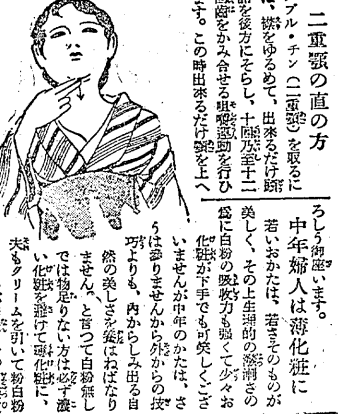 二重顎の直の方
ブル・チン(二重顎)を取るに
、襟をゆるめて、出來るだけ顎
を後方にそらし、十回乃至十二
齒をかみ合せる咀嚼運動を行ひ
す。この時出來るだけ顎を上へ
ろしう御座います。
中年婦人は薄化粧に
若いおかたは、若さそのものが
美しく、その上生理的の潑溂さの
爲に白粉の吸收力も強くて少々お
化粧が下手でも可笑しくござ
いませんが中年のかたは、さ
うは參りませんから外からの技
巧よりも、内からしみ出る自
然の美しさを養はねばなり
ません。と言つて白粉無し
では物足りない方は必ず濃
い化粧を避けて薄化粧に、
夫もクリームを引いて粉白粉